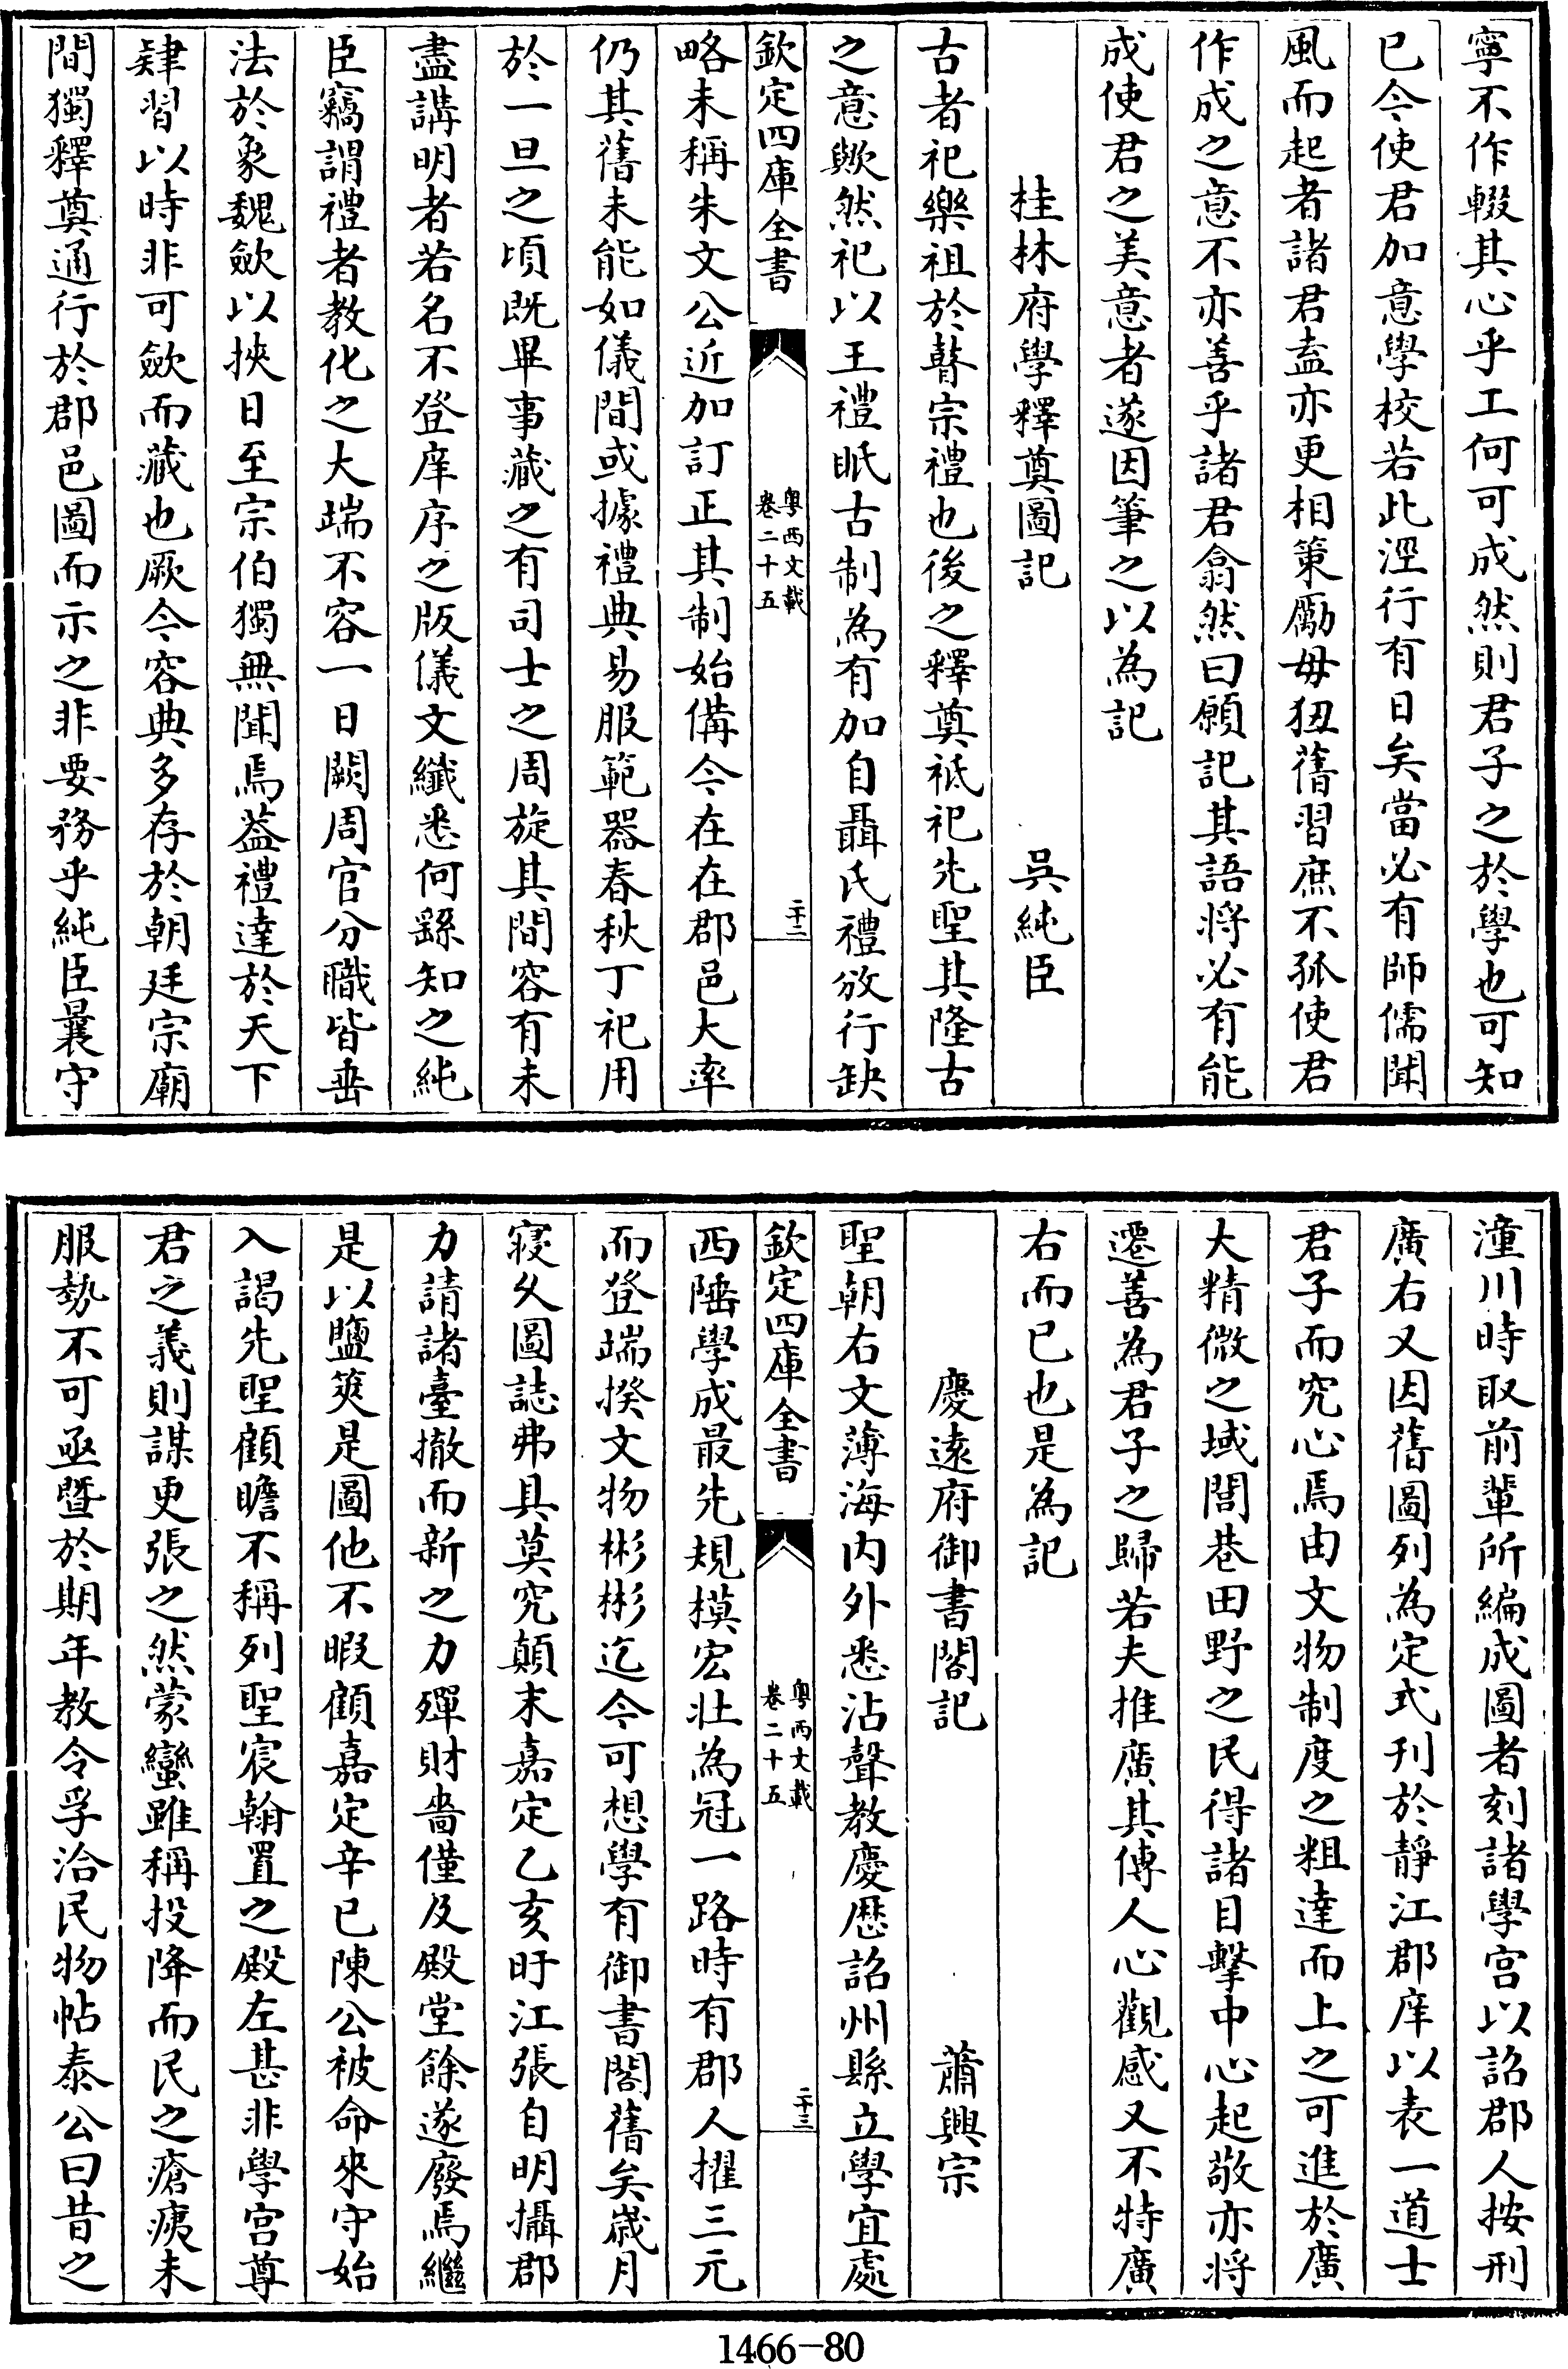 寧不作輟其心乎工何可成然則君子之於學也可知
已今使君加意學校若此涇行有日矣當必有師儒聞
風而起者諸君盍亦更相策勵毋狃舊習庶不孤使君
作成之意不亦善乎諸君翕然曰願記其語將必有能
成使君之美意者遂因筆之以為記
桂林府學釋奠圖記 吳純臣
古者祀樂祖於瞽宗禮也後之釋奠祗祀先聖其隆古
之意歟然祀以王禮眡古制為有加自聶氏禮放行缺
欽定四庫全書 粵西文載 卷二十五 二十二
略未稱朱文公近加訂正其制始備今在在郡邑大率
仍其舊未能如儀間或據禮典易服範器春秋丁祀用
於一旦之頃既畢事藏之有司士之周旋其間容有未
盡講明者若名不登庠序之版儀文纖悉何繇知之純
臣竊謂禮者教化之大端不容一日闕周官分職皆垂
法於象魏歛以挾日至宗伯獨無聞焉葢禮達於天下
肄習以時非可歛而藏也厥今容典多存於朝廷宗廟
間獨釋奠通行於郡邑圖而示之非要務乎純臣曩守
潼川時取前輩所編成圖者刻諸學宫以詔郡人按刑
廣右又因舊圖列為定式刊於靜江郡庠以表一道士
君子而究心焉由文物制度之粗達而上之可進於廣
大精微之域閭巷田野之民得諸目擊中心起敬亦將
遷善為君子之歸若夫推廣其傳人心觀感又不特廣
右而已也是為記
慶遠府御書閣記 蕭興宗
聖朝右文薄海内外悉沾聲教慶歴詔州縣立學宜處
欽定四庫全書 粵西文載 卷二十五 二十三
西陲學成最先規模宏壯為冠一路時有郡人擢三元
而登端揆文物彬彬迄今可想學有御書閣舊矣歳月
寖久圖誌弗具莫究顛末嘉定乙亥盱江張自明攝郡
力請諸臺撤而新之力殫財嗇僅及殿堂餘遂廢焉繼
是以鹽筴是圖他不暇顧嘉定辛巳陳公被命來守始
入謁先聖顧瞻不稱列聖宸翰置之殿左甚非學宫尊
君之義則謀更張之然蒙蠻雖稱投降而民之瘡痍未
服勢不可亟暨於期年教令孚洽民物帖泰公曰昔之
1466-80